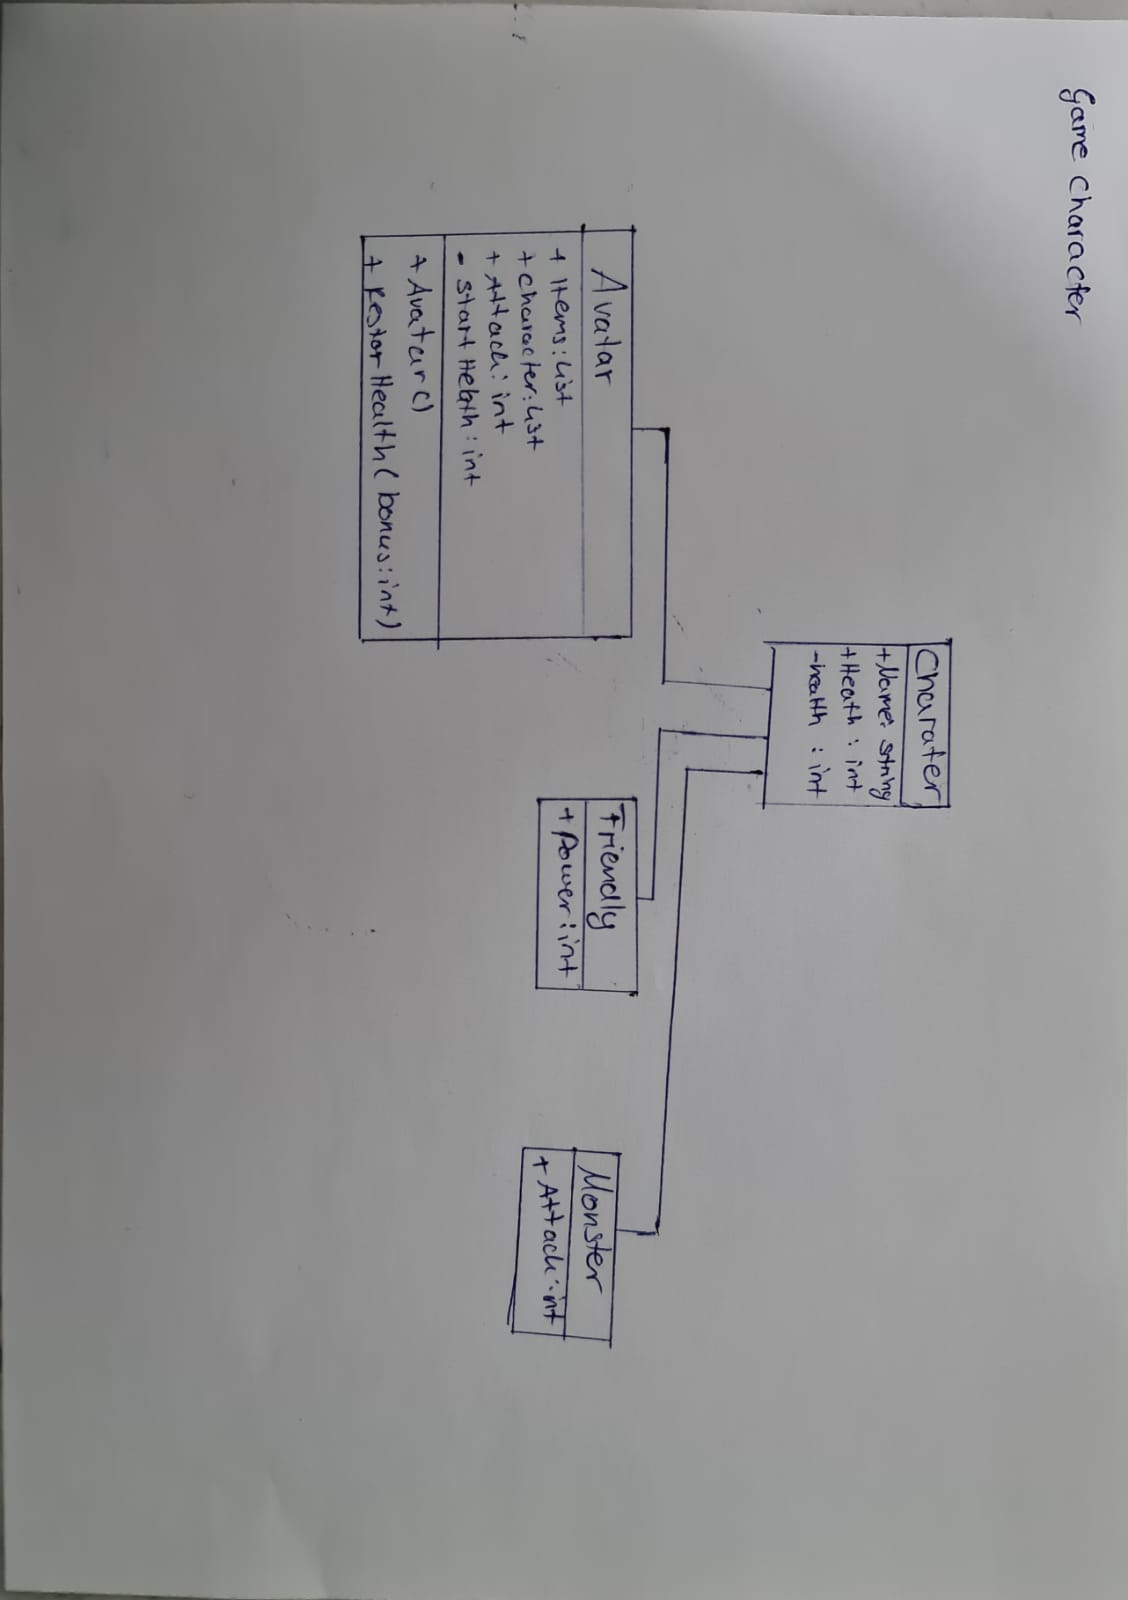 Game Character
Charater
+Name: string
+Heath : int
-health : int
Avatar
+ Items: List
+ character: List
+ Attack: int
- start Helath : int
+ Avatar()
+ RestorHealth( bonus: int)
Friendly
+ Power: int
Monster
+ Attack: int